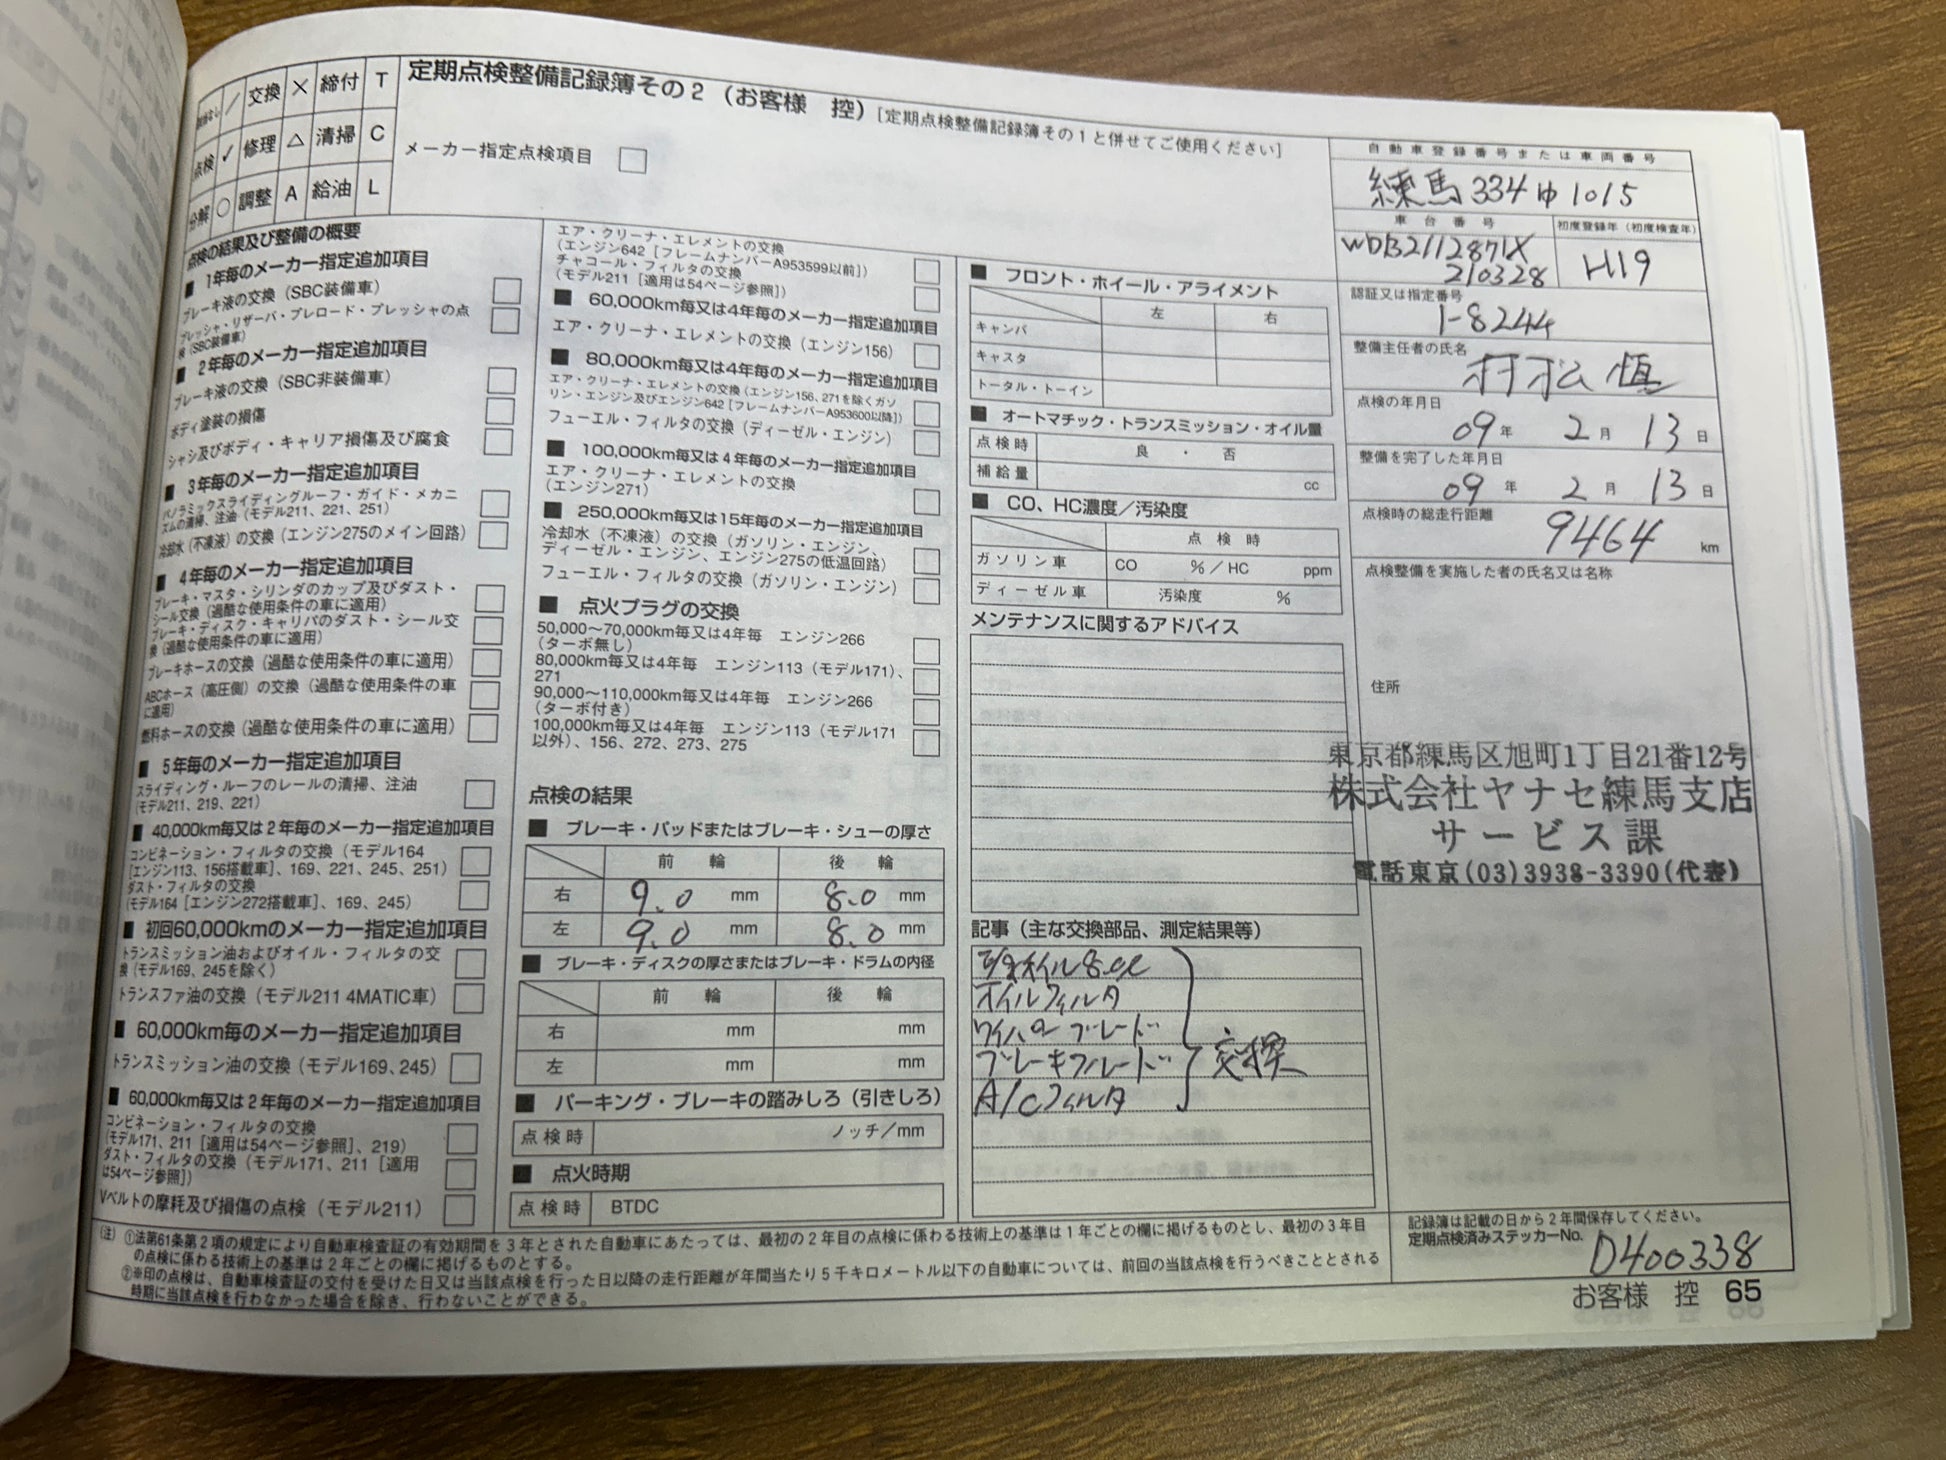 分解 ○ 調整 A 給油 L
点検 ✓ 修理 △ 清掃 C
／ 交換 × 締付 T
定期点検整備記録簿その2（お客様　控）[定期点検整備記録簿その1と併せてご使用ください]
メーカー指定点検項目 □
点検の結果及び整備の概要
■ 1年毎のメーカー指定追加項目
ブレーキ液の交換（SBC装備車）
プレッシャ・リザーバ・プレロード・プレッシャの点
検（SBC装備車）
■ 2年毎のメーカー指定追加項目
ブレーキ液の交換（SBC非装備車）
ボディ塗装の損傷
シャシ及びボディ・キャリア損傷及び腐食
■ 3年毎のメーカー指定追加項目
パノラミックスライディングルーフ・ガイド・メカニ
ズムの清掃、注油（モデル211、221、251）
冷却水（不凍液）の交換（エンジン275のメイン回路）
■ 4年毎のメーカー指定追加項目
ブレーキ・マスタ・シリンダのカップ及びダスト・
シール交換（過酷な使用条件の車に適用）
ブレーキ・ディスク・キャリパのダスト・シール交
換（過酷な使用条件の車に適用）
ブレーキホースの交換（過酷な使用条件の車に適用）
ABCホース（高圧側）の交換（過酷な使用条件の車
に適用）
燃料ホースの交換（過酷な使用条件の車に適用）
■ 5年毎のメーカー指定追加項目
スライディング・ルーフのレールの清掃、注油
（モデル211、219、221）
■ 40,000km毎又は2年毎のメーカー指定追加項目
コンビネーション・フィルタの交換（モデル164
[エンジン113、156搭載車]、169、221、245、251）
ダスト・フィルタの交換
（モデル164［エンジン272搭載車］、169、245）
■ 初回60,000kmのメーカー指定追加項目
トランスミッション油およびオイル・フィルタの交
換（モデル169、245を除く）
トランスファ油の交換（モデル211 4MATIC車）
■ 60,000km毎のメーカー指定追加項目
トランスミッション油の交換（モデル169、245）
■ 60,000km毎又は2年毎のメーカー指定追加項目
コンビネーション・フィルタの交換
（モデル171、211［適用は54ページ参照］、219）
ダスト・フィルタの交換（モデル171、211［適用
は54ページ参照］）
Vベルトの摩耗及び損傷の点検（モデル211）
エア・クリーナ・エレメントの交換
（エンジン642［フレームナンバーA953599以前］）
チャコール・フィルタの交換
（モデル211［適用は54ページ参照］）
■ 60,000km毎又は4年毎のメーカー指定追加項目
エア・クリーナ・エレメントの交換（エンジン156）
■ 80,000km毎又は4年毎のメーカー指定追加項目
エア・クリーナ・エレメントの交換（エンジン156、271を除くガソ
リン・エンジン及びエンジン642［フレームナンバーA953600以降］）
フューエル・フィルタの交換（ディーゼル・エンジン）
■ 100,000km毎又は4年毎のメーカー指定追加項目
エア・クリーナ・エレメントの交換
（エンジン271）
■ 250,000km毎又は15年毎のメーカー指定追加項目
冷却水（不凍液）の交換（ガソリン・エンジン、
ディーゼル・エンジン、エンジン275の低温回路）
フューエル・フィルタの交換（ガソリン・エンジン）
■ 点火プラグの交換
50,000〜70,000km毎又は4年毎　エンジン266
（ターボ無し）
80,000km毎又は4年毎　エンジン113（モデル171）、
271
90,000〜110,000km毎又は4年毎　エンジン266
（ターボ付き）
100,000km毎又は4年毎　エンジン113（モデル171
以外）、156、272、273、275
点検の結果
■ ブレーキ・パッドまたはブレーキ・シューの厚さ
前　輪　後　輪
右 9.0 mm 8.0 mm
左 9.0 mm 8.0 mm
■ ブレーキ・ディスクの厚さまたはブレーキ・ドラムの内径
前　輪　後　輪
右 mm mm
左 mm mm
■ パーキング・ブレーキの踏みしろ（引きしろ）
点検時 ノッチ／mm
■ 点火時期
点検時 BTDC
■ フロント・ホイール・アライメント
左 右
キャンバ
キャスタ
トータル・トーイン
■ オートマチック・トランスミッション・オイル量
点検時 良・否
補給量 cc
■ CO、HC濃度／汚染度
点検時
ガソリン車 CO %／HC ppm
ディーゼル車 汚染度 %
メンテナンスに関するアドバイス
記事（主な交換部品、測定結果等）
オイルフィルタ
ワイパーブレード
ブレーキフルード 交換
A/Cフィルタ
自動車登録番号または車両番号
練馬 334 ゆ 1015
車台番号 初度登録年（初度検査年）
WDB2112871X
210328 H19
認証又は指定番号
1-8244
整備主任者の氏名
村松 慎
点検の年月日
09年 2月 13日
整備を完了した年月日
09年 2月 13日
点検時の総走行距離
9464 km
点検整備を実施した者の氏名又は名称
住所
東京都練馬区旭町1丁目21番12号
株式会社ヤナセ練馬支店
サービス課
電話東京(03)3938-3390(代表)
（注）①法第61条第2項の規定により自動車検査証の有効期間を3年とされた自動車にあたっては、最初の2年目の点検に係わる技術上の基準は1年ごとの欄に掲げるものとし、最初の3年目
の点検に係わる技術上の基準は2年ごとの欄に掲げるものとする。
②※印の点検は、自動車検査証の交付を受けた日又は当該点検を行った日以降の走行距離が年間当たり5千キロメートル以下の自動車については、前回の当該点検を行うべきこととされる
時期に当該点検を行わなかった場合を除き、行わないことができる。
記録簿は記載の日から2年間保存してください。
定期点検済みステッカーNo. D400338
お客様　控 65